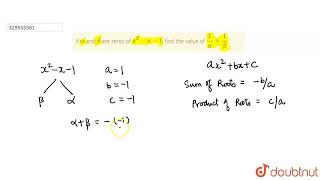 329555561
If α and β are zeros of x² - x - 1, find the value of 1/α + 1/β
x²-x-1
a=1
ax²+bx+c
b=-1
Sum of Roots = -b/a
β α
c=-1
Product of Roots = c/a
α+β = -(-1)
doubtnut